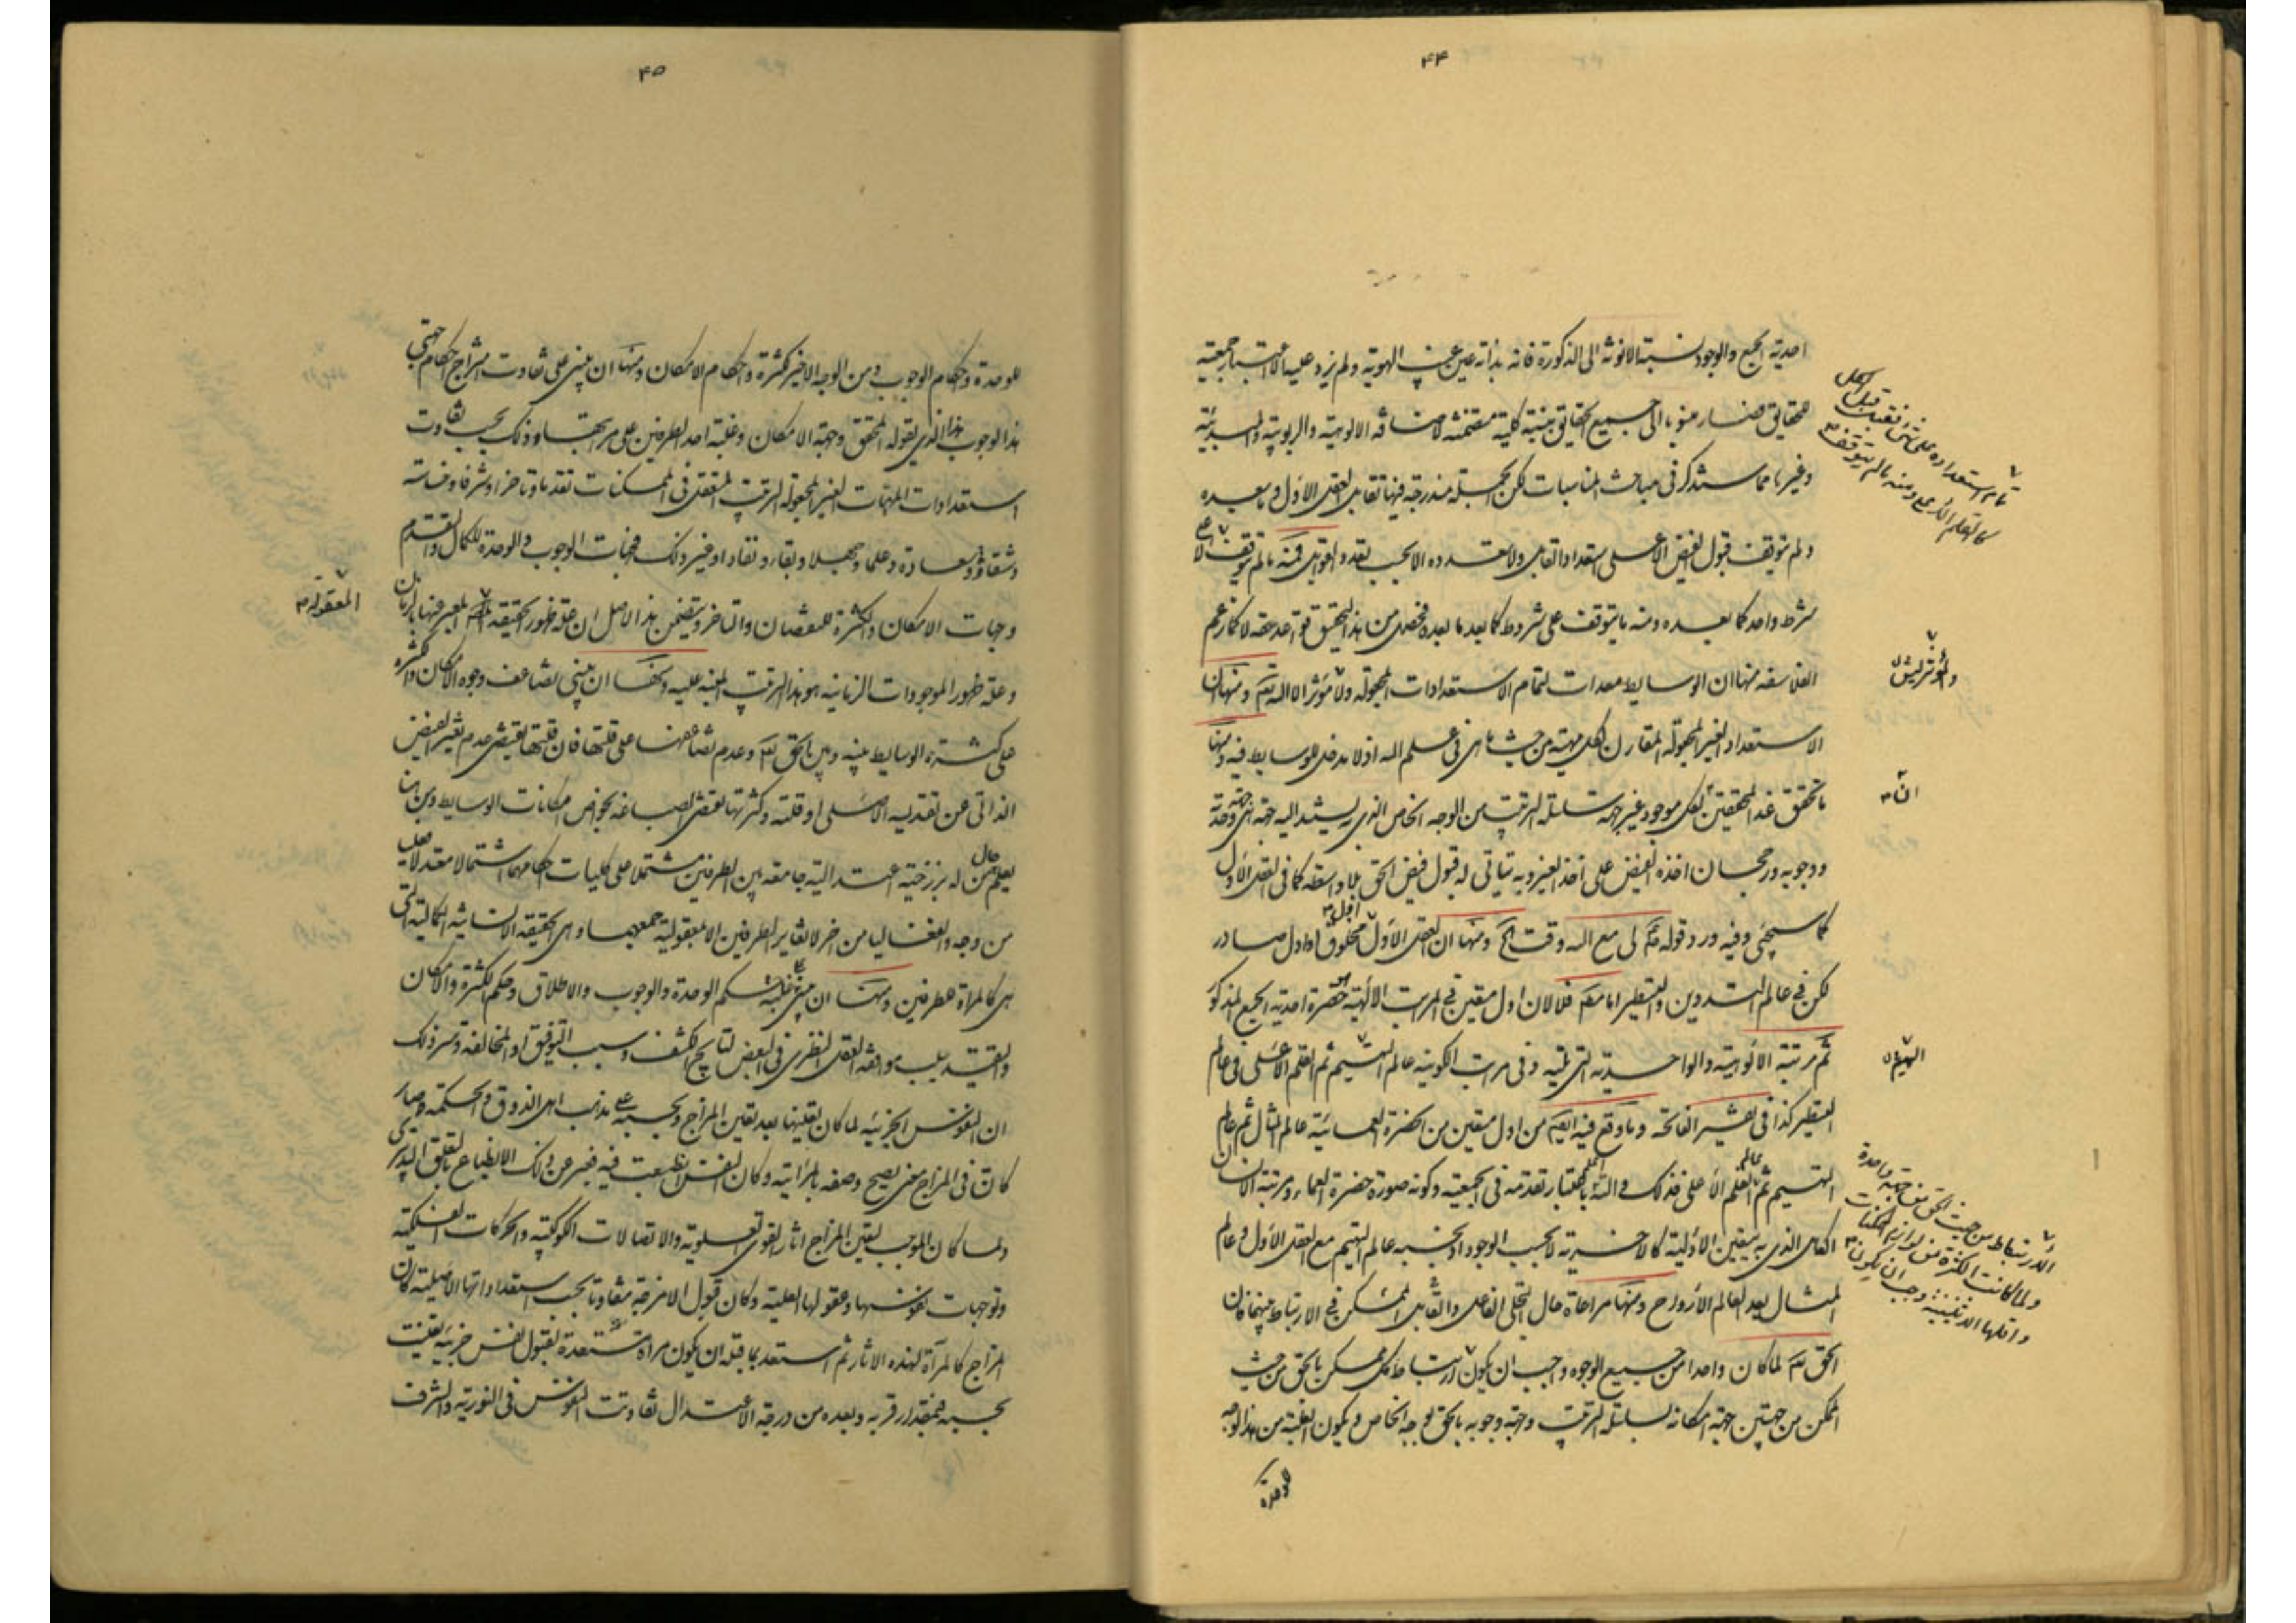 ۴۴
احدية الجمع والوجود نسبة الانوثة الى الذكورة فانه بذاته عين غيب الهوية ولم يزد عليه الا اعتبار جمعيته
للحقايق فصار منسوبا الى جميع الحقايق بنسبة كلية متضمنة لاضافة الالوهية والربوبية والمبدئية
وغيرها مما ستذكر في مباحث المناسبات لكن الجملة مندرجة فيها تقابل العقل الاول وما بعده
ولم يتوقف قبول الفيض الا على استعداد القابل ولا تعدده الا بحسب تعدد القوابل فمنه ما لم يتوقف الا على
شرط واحد كما بعده ومنه ما يتوقف على شروط كما بعد ما بعده فحصل من هذا التحقيق قواعد حقة لا كما زعم
الفلاسفة منها ان الوسايط معدات لتمام الاستعدادات المجعولة ولا مؤثر الا الله تعم ومنها ان
الاستعداد الغير المجعولة المقارن لكل مهية من حيث هى في علم الله اذ لا مدخل للوسايط فيه ومنها
ما تحقق عند المحققين لكل موجود غير جهة سلسلة الترتيب من الوجه الخاص الذي يستند اليه جهة هى وحدته
ووجوبه ورجحان اخذه الفيض على اخذ الغير وبه يتأتى له قبول فيض الحق بلا واسطة كما في العقل الاول
كما سيجئ وفيه ورد قوله صم لى مع الله وقت الخ ومنها ان العقل الاول مخلوق اول او اول صادر
لكن في عالم التدوين والتسطير اما مطلقا فلا لان اول متعين في المراتب الالهية حضرة احدية الجمع المذكور
ثم مرتبة الالوهية والواحدية التى تليه وفى مراتب الكونية عالم التهييم ثم القلم الاعلى في عالم
التسطير كذا في تفسير الفاتحة وما وقع فيه ايضا من اول متعين من الحضرة العمائية عالم المثال ثم عالم
التهييم ثم عالم القلم الاعلى فذلك والله اعلم باعتبار تقدمه فى الجمعية وكونه صورة حضرة العماء ومرتبة الانسان
الكامل الذي به يتعين الاولية كالاخرية لا بحسب الوجود اذ بحسبه عالم التهييم مع العقل الاول وعالم
المثال بعد العالم الأرواح ومنها مراعاة حال التجلى الفاعل والقابل الممكن في الارتباط بينهما فان
الحق تعم لما كان واحدا من جميع الوجوه وجب ان يكون ارتباط كل ممكن بالحق من حيث
الممكن من جهتين جهة امكانه بسلسلة الترتيب وجهة وجوبه بالحق بوجه الخاص ويكون الغلبة من هذا الوجه
للوحدة
تمام استعداده على شئ فقبله قبل الكل
كالقلم الأعلى ومنه ما لم يتوقف
والمؤثر ليس
ان
التهيم
الارتباط من حيث الحق من جهة واحدة
ولما كانت الكثرة من لوازم الممكنات
واقلها الاثنينية وجب ان يكون
۴۵
للوحدة واحكام الوجوب ومن الوجه الاخير كثرة واحكام الامكان ومنها ان يبنى على تفاوت امتزاج احكام جهتى
هذا الوجوب هذا الذي يقوله المحقق وجهة الامكان وغلبة احد الطرفين على مرتبتهما وذلك بحسب تفاوت
استعدادات المهيات الغير المجعولة الترتيب المتعقل فى الممكنات تقدما وتاخرا وشرفا وخاسة
وشقاوة وسعادة وعلما وجهلا وبقاء ونفادا وغير ذلك فجهات الوجوب والوحدة للكمال والتقدم
وجهات الامكان والكثرة للنقصان والتاخر ويتضمن هذا الاصل ان علة ظهور الحقيقة المعبر عنها بالزمان
وعلة ظهور الموجودات الزمانية هو هذا الترتيب المنبه عليه ومنها ان يبنى تضاعف وجوه الامكان والكثرة
على كثرة الوسايط بينه وبين الحق تعم وعدم تضاعفها على قلتها فان قلتها يقتضى عدم تغير الفيض
الذاتى عن تقديسه الاصلى او قلته وكثرتها تقتضى انصباغه بخواص امكانات الوسايط ومن هنا
يعلم حال من له برزخية اعتدالية جامعة بين الطرفين مشتملا على كليات احكامهما اشتمالا معتدلا فعليا
من وجه وانفعاليا من اخر لا تغاير الطرفين الا بمعقولية جمعهما وهى الحقيقة الانسانية الكمالية التى
هى كالمرآة للطرفين ومنها ان يبنى على غلبة حكم الوحدة والوجوب والاطلاق وحكم الكثرة والامكان
والتقييد بسبب موافقة العقل النظرى فى البعض لنتايج الكشف وسبب التوفيق او المخالفة وسر ذلك
ان النفوس الجزئية لما كان تعينها بعد تعين المزاج وبحسبه على مذهب اهل الذوق والحكمة وصار
كانت فى المزاج معنى يصح وصفه بالمرآتية وكان النفس انطبعت فيه فعبر عن ذلك الانطباع بالتعلق التدبيرى
ولما كان الموجب لتعين المزاج اثار القوى العلوية والاتصالات الكوكبية والحركات الفلكية
وتوجهات نفوسها وعقولها العلية وكان قبول الامزجة متفاوتا بحسب استعداداتها الاصلية كان
المزاج كالمرآة لهذه الاثار ثم استعد بما قبله ان يكون مرآة مستعدة لقبول نفس جزئية تعينت
بحسبه فبمقدار قربه وبعده من درجة الاعتدال تفاوتت النفوس فى النورية والشرف
المعقولة